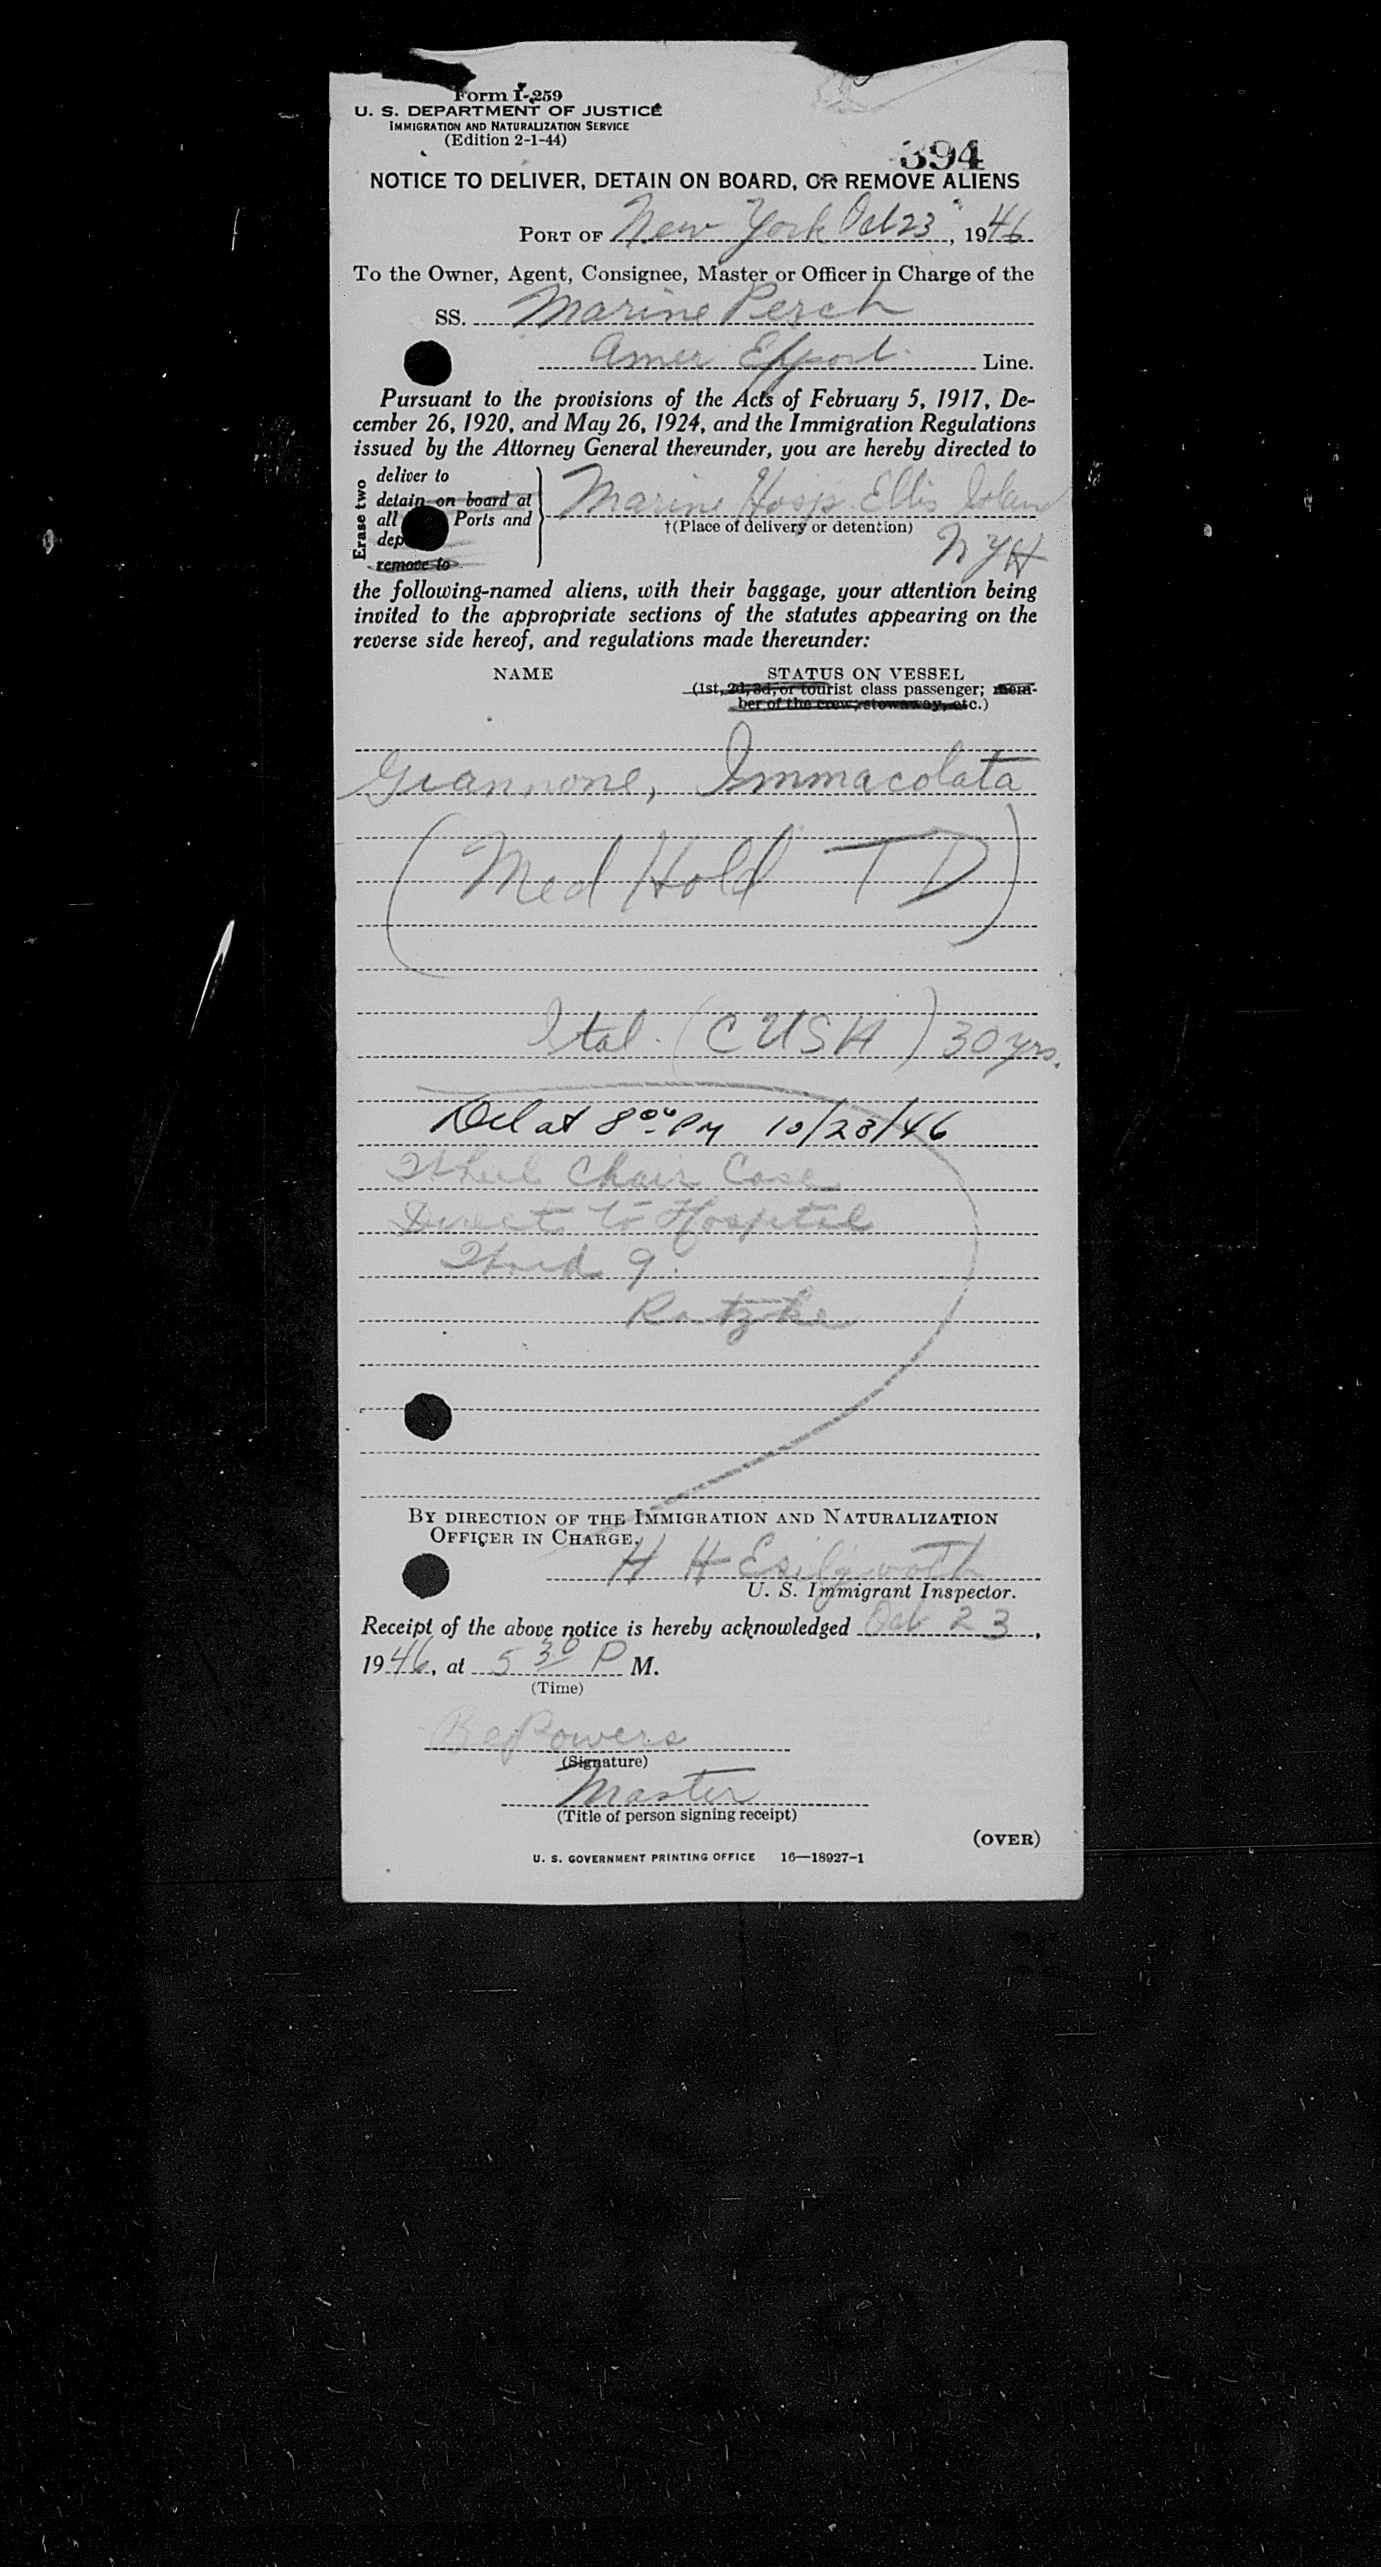 Form I-259
U. S. DEPARTMENT OF JUSTICE
IMMIGRATION AND NATURALIZATION SERVICE
(Edition 2-1-44)
394
NOTICE TO DELIVER, DETAIN ON BOARD, OR REMOVE ALIENS
PORT OF New York Oct 23, 1946
To the Owner, Agent, Consignee, Master or Officer in Charge of the
SS. Marine Perch
Amer Export Line.
Pursuant to the provisions of the Acts of February 5, 1917, De-
cember 26, 1920, and May 26, 1924, and the Immigration Regulations
issued by the Attorney General thereunder, you are hereby directed to
Erase two
deliver to
detain on board at
all Ports and
dep
remove to
Marine Hosp Ellis Islan
†(Place of delivery or detention)
N Y H
the following-named aliens, with their baggage, your attention being
invited to the appropriate sections of the statutes appearing on the
reverse side hereof, and regulations made thereunder:
NAME STATUS ON VESSEL
(1st, 2d, 3d, or tourist class passenger; mem-
ber of the crew, stowaway, etc.)
Giannone, Immacolata
(Med Hold T D)
Ital. (C USA) 30 yrs.
Del at 8 00 PM 10/23/46
Wheel Chair Case
Direct to Hospital
Ward 9.
Ratzke
BY DIRECTION OF THE IMMIGRATION AND NATURALIZATION
OFFICER IN CHARGE.
H H
U. S. Immigrant Inspector.
Receipt of the above notice is hereby acknowledged Oct 23,
1946, at 5 30 P M.
(Time)
Powers
(Signature)
Master
(Title of person signing receipt)
(OVER)
U. S. GOVERNMENT PRINTING OFFICE 16—18927-1